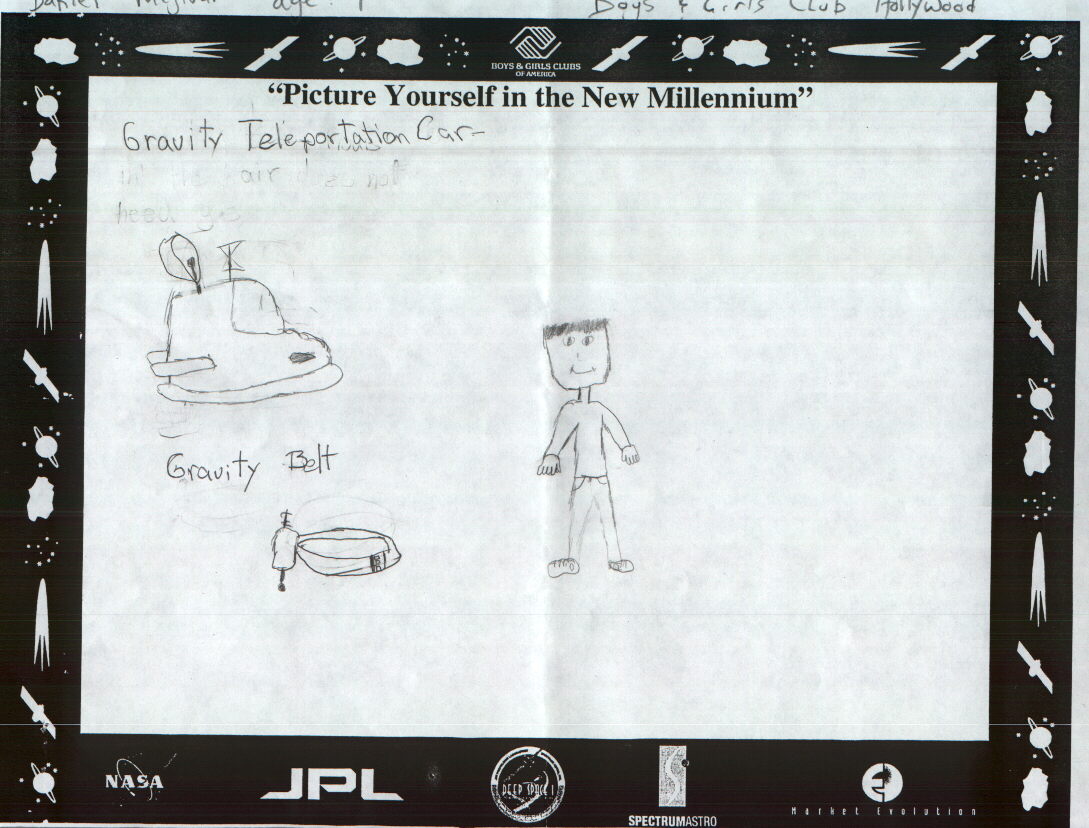 age
Boys & Girls Club Hollywood
BOYS & GIRLS CLUBS
OF AMERICA
“Picture Yourself in the New Millennium”
Gravity Teleportation Car-
in the air does not
need
Gravity Belt
NASA
JPL
DEEP SPACE 1
SPECTRUMASTRO
Market Evolution